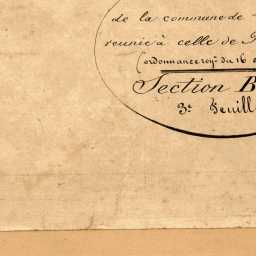 de la commune de
réunie à celle de
(ordonnance roy. du 16
Section B
3e Feuill